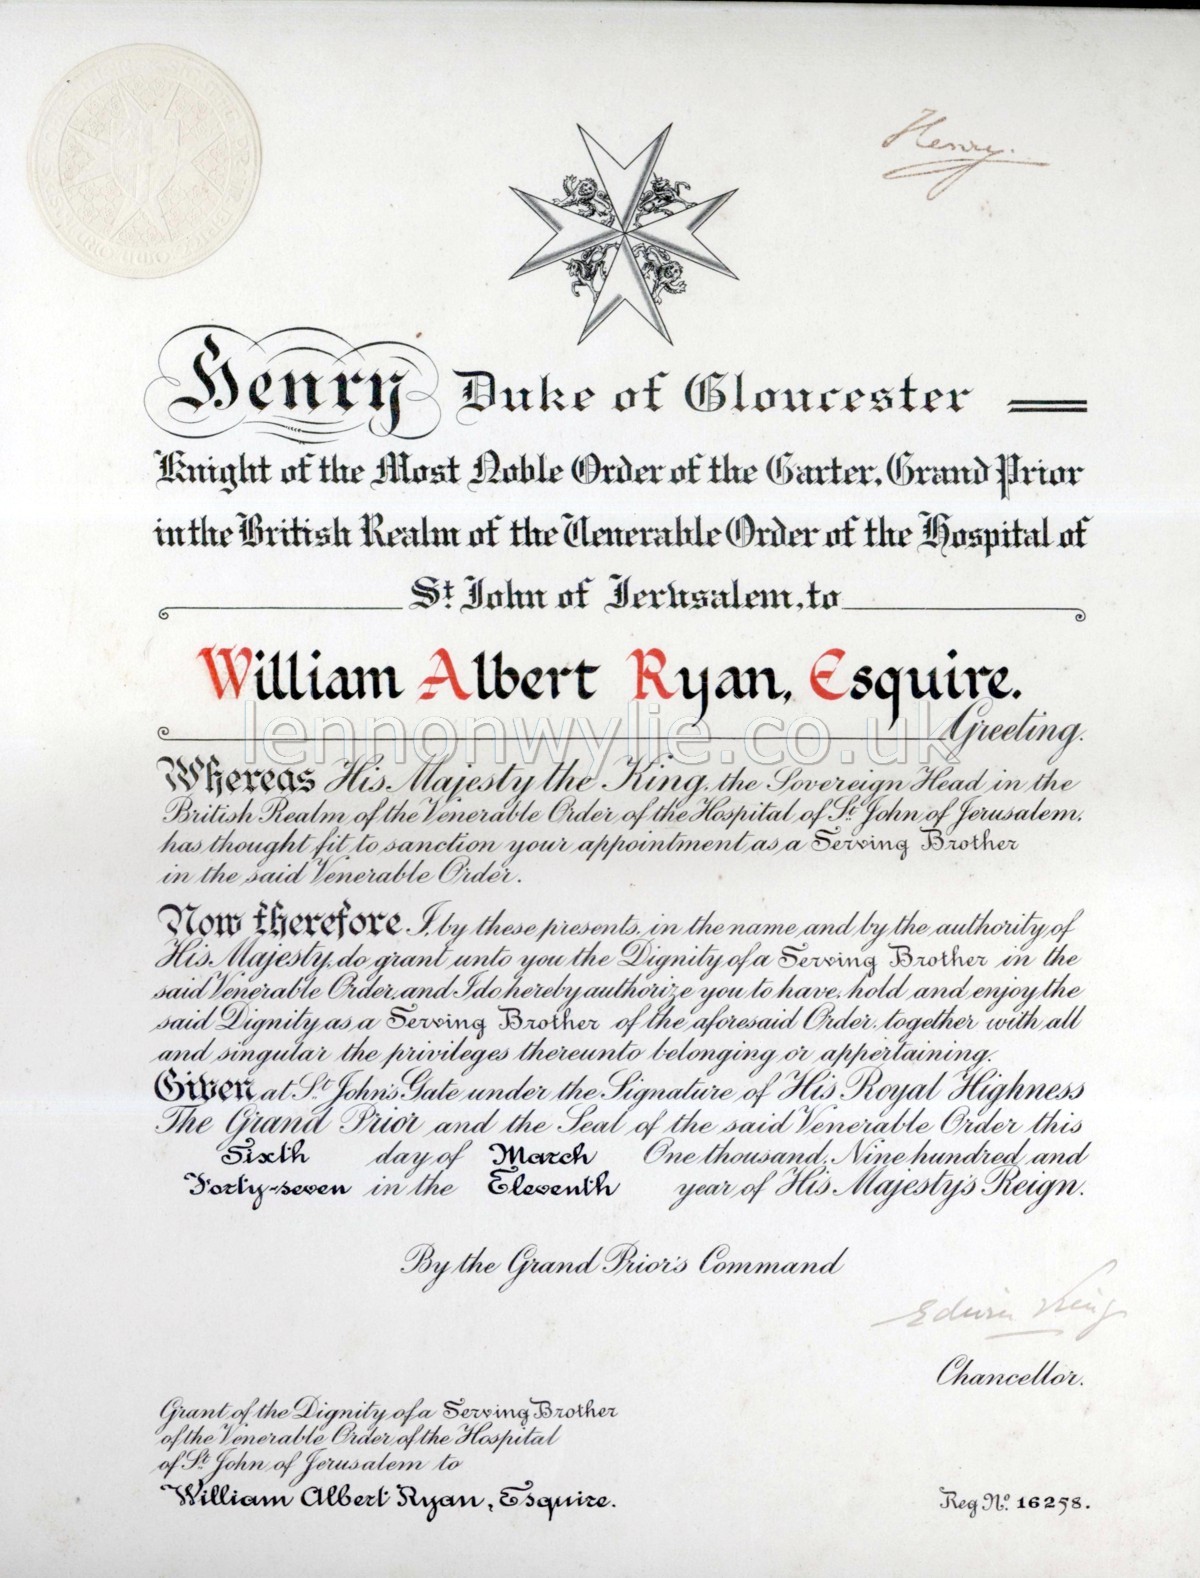 Henry.
Henry Duke of Gloucester
Knight of the Most Noble Order of the Garter, Grand Prior
in the British Realm of the Venerable Order of the Hospital of
St. John of Jerusalem, to
William Albert Ryan, Esquire.
lennonwylie.co.uk
Greeting.
Whereas His Majesty the King, the Sovereign Head in the
British Realm of the Venerable Order of the Hospital of St. John of Jerusalem,
has thought fit to sanction your appointment as a Serving Brother
in the said Venerable Order.
Now therefore I, by these presents, in the name and by the authority of
His Majesty, do grant unto you the Dignity of a Serving Brother in the
said Venerable Order, and I do hereby authorize you to have, hold and enjoy the
said Dignity as a Serving Brother of the aforesaid Order, together with all
and singular the privileges thereunto belonging or appertaining.
Given at St. John's Gate under the Signature of His Royal Highness
The Grand Prior and the Seal of the said Venerable Order this
Sixth day of March One thousand, Nine hundred, and
Forty-seven in the Eleventh year of His Majesty's Reign.
By the Grand Prior's Command
Edwin King
Chancellor.
Grant of the Dignity of a Serving Brother
of the Venerable Order of the Hospital
of St. John of Jerusalem to
William Albert Ryan, Esquire.
Reg No. 16258.